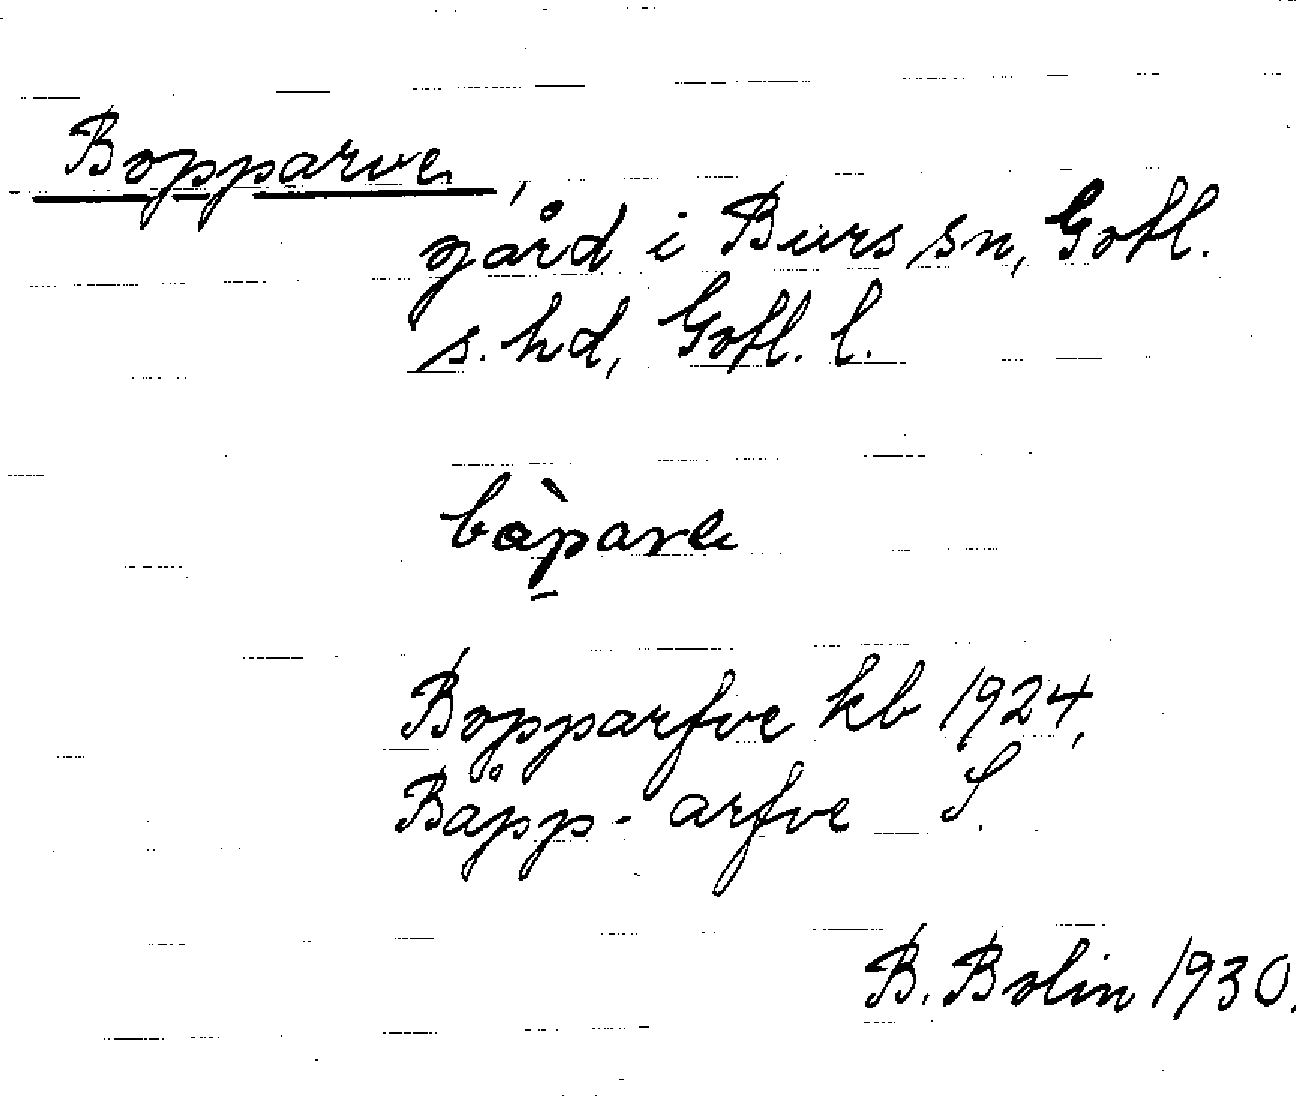 Bopparve,
gård i Burs sn, Gotl.
s. hd, Gotl. l.
bàp̠arve
Bopparfve kb 1924,
Båpp-arfve S.
B. Bolin 1930.